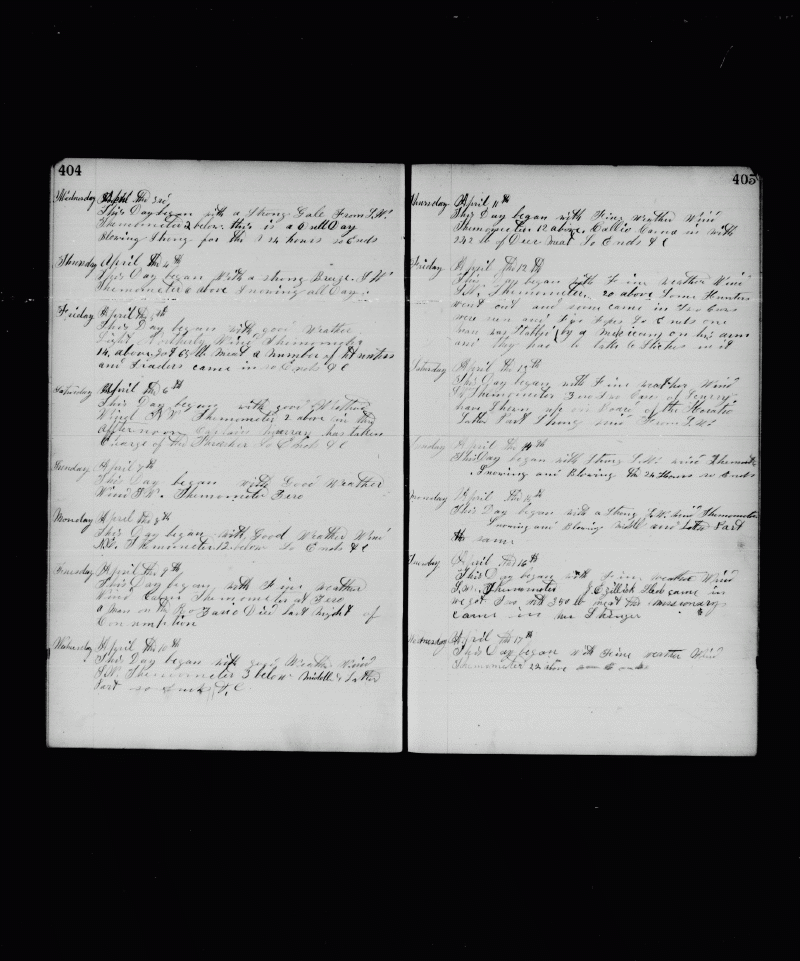 404
Wednesday April the 3rd
This Day began with a Strong Gale From S.W.
Themometer 2 below. this is a Dull Day
Blowing Strong for the 24 hours so Ends
Thursday April the 4th
This Day began With a strong Breeze S.W.
Themometer 0 above Snowing all Day
Friday April the 5th
This Day began with good Weather
Light Northerly Wind Themometer
14 above got 65 lb meat a number of Hunters
and Traders came in so Ends &c
Saturday April the 6th
This Day began with good Weather
Wind N.W. Themometer 2 above in the
afternoon Captain Murray has taken
Charge of the Thrasher So Ends &c
Sunday April 7th
This Day began with Good Weather
Wind S.W. Themometer Zero
Monday April the 8th
This Day began with Good Weather Wind
N.E. Themometer 12 below So Ends &c
Tuesday April the 9th
This Day began with Fine weather
Wind Themometer at Zero
a man on the Died last night of
Consumption
Wednesday April the 10th
This Day began with good Weather Wind
S.W. Themometer 3 below Middle & Latter
Part so Ends &c
405
Thursday April 11th
This Day began with Fine weather Wind
Themometer 12 above. Came in with
242 lb of Deer meat So Ends &c
Friday April the 12th
This Day began with Fine weather Wind
S.W. Themometer 20 above Some Hunters
went out and some came in Two
were seen and So Ends one
man was Stabbed by a on his arm
and they has to take 6 Stiches in it
Saturday April the 13th
This Day began with Fine weather Wind
Themometer 3 and Two Case of
have Shown up on Board of the
Latter Part Strong wind From S.W.
Sunday April the 14th
This Day began with Strong S.W. wind Themomete
Snowing and Blowing the 24 hours so Ends
Monday April the 15th
This Day began with a Strong S.W. Wind Themometer
Snowing and Blowing Middle and latter Part
the same
Tuesday April the 16th
This Day began with Fine weather Wind
S.W. Themometer Sled came in
we got 350 lb meat the missionary
came in
Wednesday April the 17th
This Day began with Fine weather Wind
Themometer 22 above so Ends